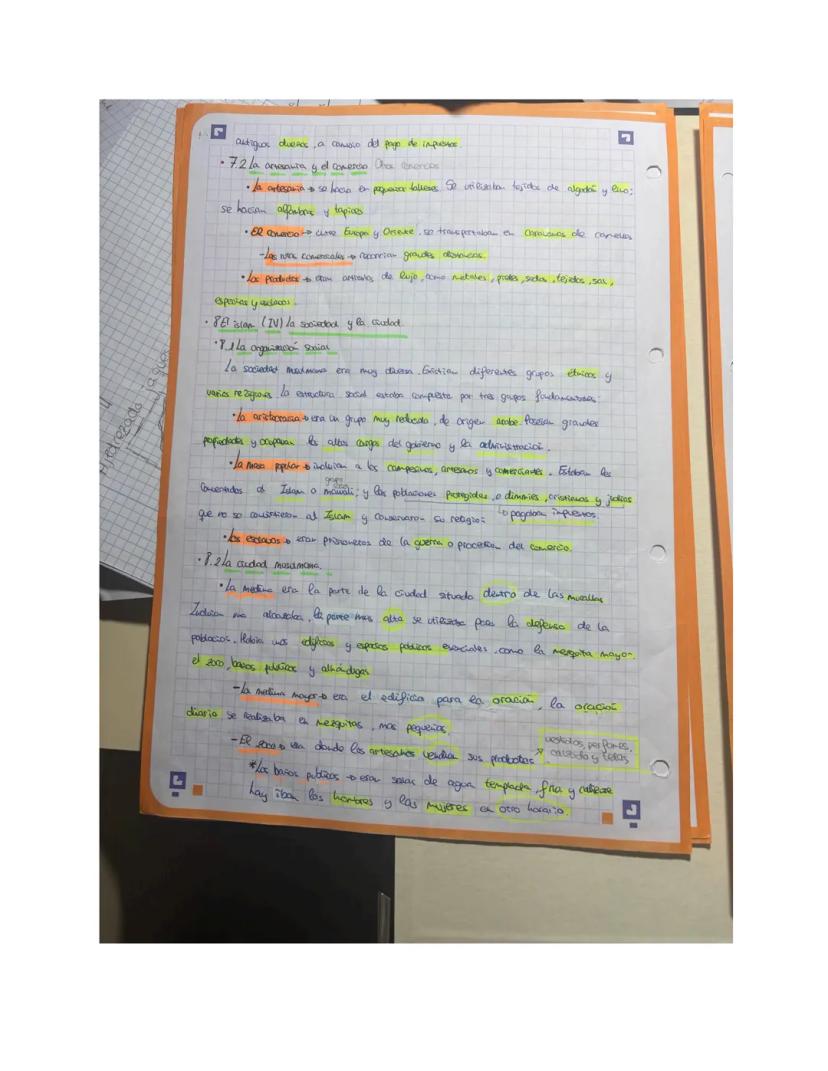 antiguos dueños, a cambio del pago de impuestos.
• 7.2 La artesanía y el comercio
• La artesanía → se hacía en pequeños talleres. Se utilizaban tejidos de algodón y lino;
se hacían alfombras y tapices
• El comercio → entre Europa y Oriente, se transportaban en caravanas de camellos
- Las rutas comerciales → recorrían grandes distancias.
• Los productos → eran artículos de lujo, como metales, pieles, sedas, tejidos, sal,
especias y esclavos.
• 8 El islam (IV) La sociedad y la ciudad.
• 8.1 La organización social
La sociedad musulmana era muy diversa. Existían diferentes grupos étnicos y
varias religiones. La estructura social estaba compuesta por tres grupos fundamentales:
• La aristocracia → era un grupo muy reducido, de origen árabe. Poseían grandes
propiedades y ocupaban los altos cargos del gobierno y la administración.
• La masa popular → incluían a los campesinos, artesanos y comerciantes. Estaban los
convertidos al Islam o mawali; y las poblaciones protegidas, o dimmíes, cristianos y judíos
que no se convirtieron al Islam y conservaron su religión
↳ pagaban impuestos.
• Los esclavos → eran prisioneros de la guerra o procedían del comercio.
• 8.2 La ciudad musulmana.
• La medina era la parte de la ciudad situada dentro de las murallas
Incluían una alcazaba, la parte más alta se utilizaba para la defensa de la
población. Había unos edificios y espacios públicos esenciales, como la mezquita mayor.
el zoco, baños públicos y alhóndigas
- La medina mayor → era el edificio para la oración, la oración
diaria se realizaba en mezquitas, más pequeñas.
- El zoco → era donde los artesanos vendían sus productos
↗ vestidos, perfumes,
calzado y telas
* Los baños públicos → eran salas de agua templada, fría y caliente
hay iban los hombres y las mujeres en otro horario.